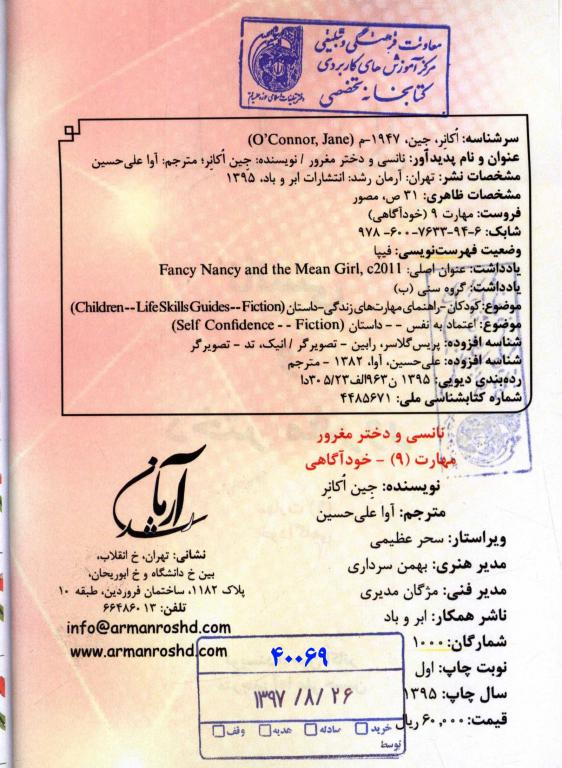 معاونت فرهنگی و تبلیغی
مرکز آموزش های کاربردی
کتابخانه تخصصی
دفتر تبلیغات اسلامی حوزه علمیه قم
سرشناسه: اُکانِر، جین، ۱۹۴۷-م (O'Connor, Jane)
عنوان و نام پدیدآور: نانسی و دختر مغرور / نویسنده: جین اُکانِر؛ مترجم: آوا علی‌حسین
مشخصات نشر: تهران: آرمان رشد: انتشارات ابر و باد، ۱۳۹۵
مشخصات ظاهری: ۳۱ ص، مصور
فروست: مهارت ۹ (خودآگاهی)
شابک: ۶-۹۴-۷۶۳۳-۶۰۰-۹۷۸
وضعیت فهرست‌نویسی: فیپا
یادداشت: عنوان اصلی: Fancy Nancy and the Mean Girl, c2011
یادداشت: گروه سنی (ب)
موضوع: کودکان-راهنمای مهارت‌های زندگی-داستان (Children--Life Skills Guides--Fiction)
موضوع: اعتماد به نفس -- داستان (Self Confidence -- Fiction)
شناسه افزوده: پریس‌گلاسر، رابین - تصویرگر / انیک، تد - تصویرگر
شناسه افزوده: علی‌حسین، آوا، ۱۳۸۲ - مترجم
رده‌بندی دیویی: ۱۳۹۵ ن۹۶۳الف۳۰۵/۲۳دا
شماره کتابشناسی ملی: ۴۴۸۵۶۷۱
نانسی و دختر مغرور
مهارت (۹) - خودآگاهی
نویسنده: جین اُکانِر
مترجم: آوا علی‌حسین
ویراستار: سحر عظیمی
مدیر هنری: بهمن سرداری
مدیر فنی: مژگان مدیری
ناشر همکار: ابر و باد
شمارگان: ۱۰۰۰
نوبت چاپ: اول
سال چاپ: ۱۳۹۵
قیمت: ۶۰,۰۰۰ ریال
آرمان رشد
نشانی: تهران، خ انقلاب،
بین خ دانشگاه و خ ابوریحان،
پلاک ۱۱۸۲، ساختمان فروردین، طبقه ۱۰
تلفن: ۶۶۴۸۶۰۱۳
info@armanroshd.com
www.armanroshd.com
۴۰۰۶۹
۱۳۹۷ /۸/ ۲۶
خرید مبادله هدیه وقف
توسط